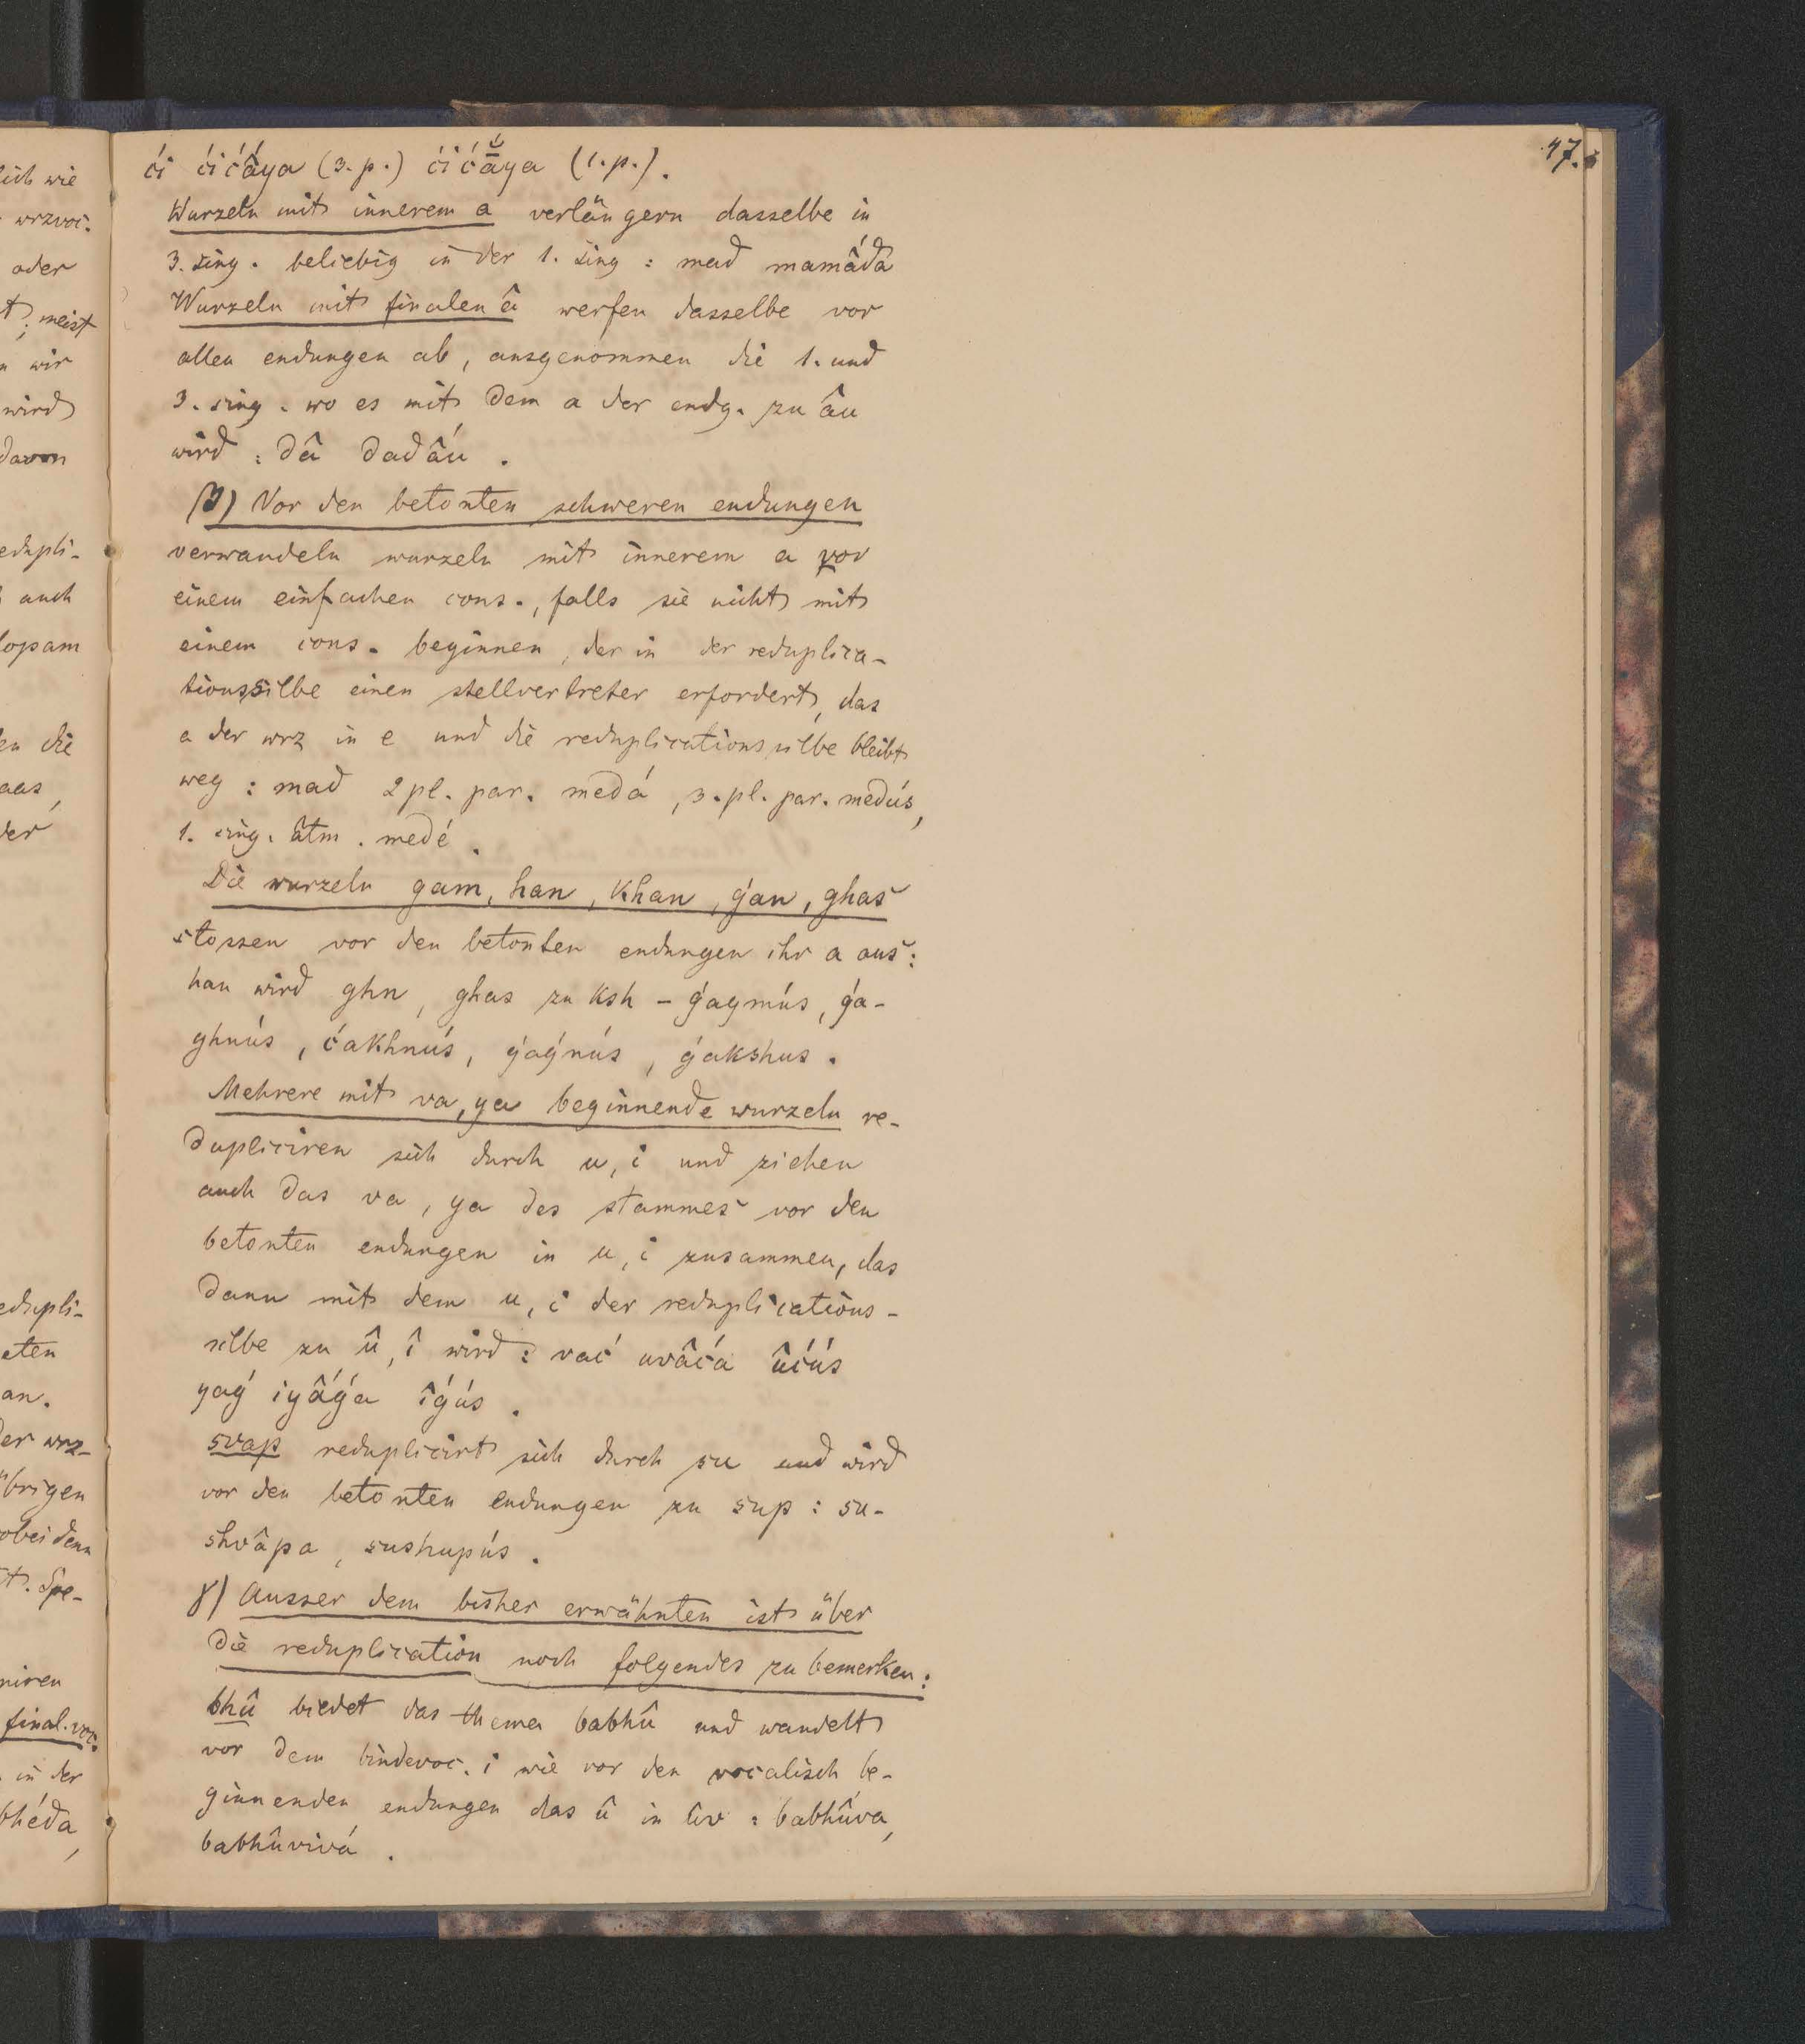 47.
ći ćićấya (3. p.) ćićā̆́ya (1. p.).
Wurzeln mit innerem a verlängern dasselbe in
3. sing. beliebig in der 1. sing : mad mamấda
Wurzeln mit finalen â werfen dasselbe vor
allen endungen ab, ausgenommen die 1. und
3. sing. wo es mit dem a der endg. zu âu
wird : dâ dadâú.
β) Vor den betonten schweren endungen
verwandeln wurzeln mit innerem a vor
einem einfachen cons., falls sie nicht mit
einem cons. beginnen, der in der reduplica-
tionssilbe einen stellvertreter erfordert, das
a der wrz in e und die reduplicationssilbe bleibt
weg : mad 2 pl. par. medá, 3. pl. par. medús,
1. sing. âtm. medé.
Die wurzeln gam, han, khan, ǵan, ghas
stossen vor den betonten endungen ihr a aus :
han wird ghn, ghas zu ksh – ǵagmús, ǵa-
ghnús, ćakhnús, ǵaǵnús, ǵakshus.
Mehrere mit va, ya beginnende wurzeln re-
dupliciren sich durch u, i und ziehen
auch das va, ya des stammes vor den
betonten endungen in u, i zusammen, das
dann mit dem u, i der reduplications-
silbe zu û, î wird : vać uvâća ûćús
yaǵ iyấǵa îǵús.
svap reduplicirt sich durch su und wird
vor den betonten endungen zu sup : su-
shvâpa, sushupús.
γ) Ausser dem bisher erwähnten ist über
die reduplication noch folgendes zu bemerken :
bhû bildet das thema babhû und wandelt
vor dem bindevoc. i wie vor den vocalisch be-
ginnenden endungen das û in ûv : babhûva,
babhûvivá.